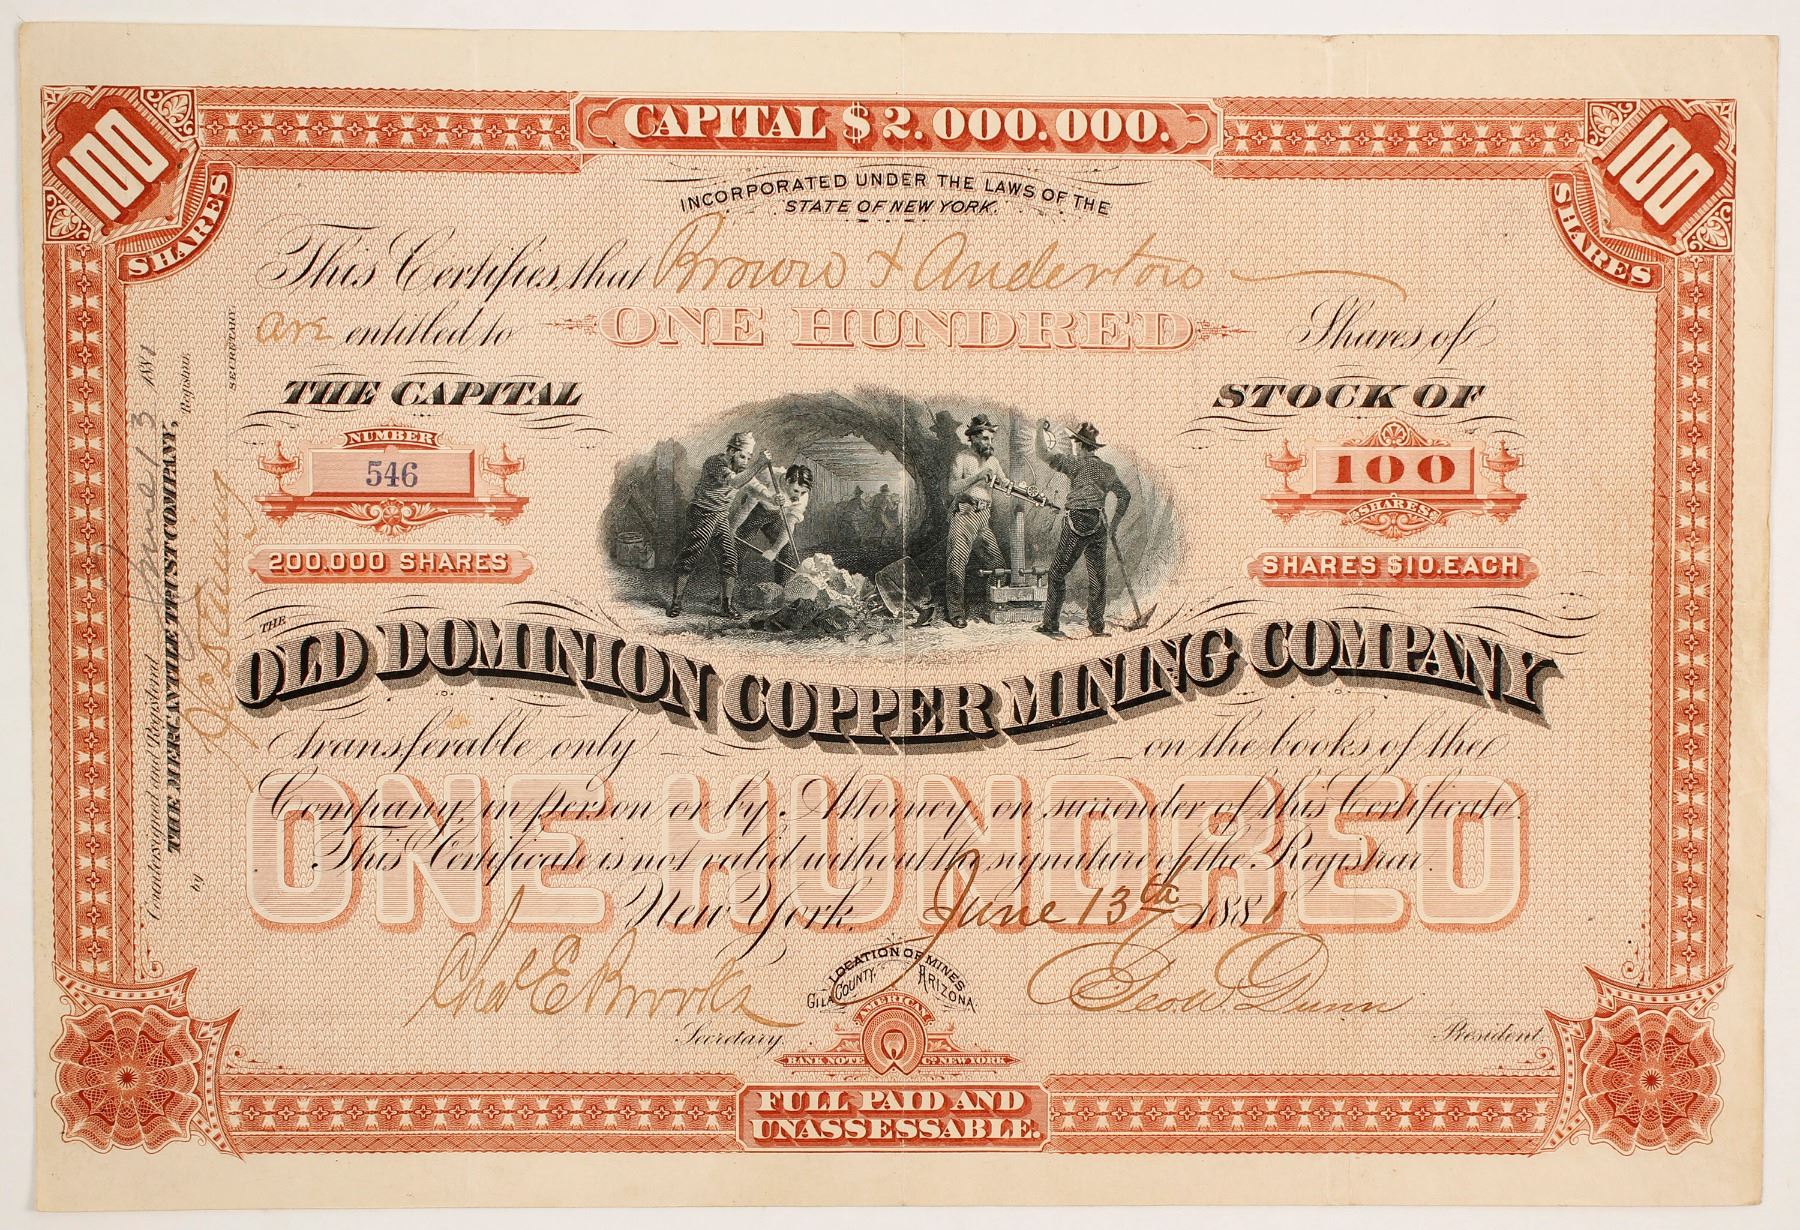 CAPITAL $2.000.000.
100 SHARES
100 SHARES
INCORPORATED UNDER THE LAWS OF THE
STATE OF NEW YORK.
This Certifies that Brown & Anderton
are entitled to ONE HUNDRED Shares of
THE CAPITAL STOCK OF
NUMBER
546
200.000 SHARES
100
SHARES
SHARES $10. EACH
THE
OLD DOMINION COPPER MINING COMPANY
Transferable only on the books of the
Company, in person or by Attorney on surrender of this Certificate.
This Certificate is not valid without the signature of the Registrar.
ONE HUNDRED
New York, June 13th 1881
Chas E Brooks
Secretary.
LOCATION OF MINES
GILA COUNTY, ARIZONA
Geo. W. Dunn
President.
AMERICAN
BANK NOTE CO NEW YORK
FULL PAID AND
UNASSESSABLE.
Countersigned and Registered June 13 1881
THE MERCANTILE TRUST COMPANY,
Registrar
by
SECRETARY.